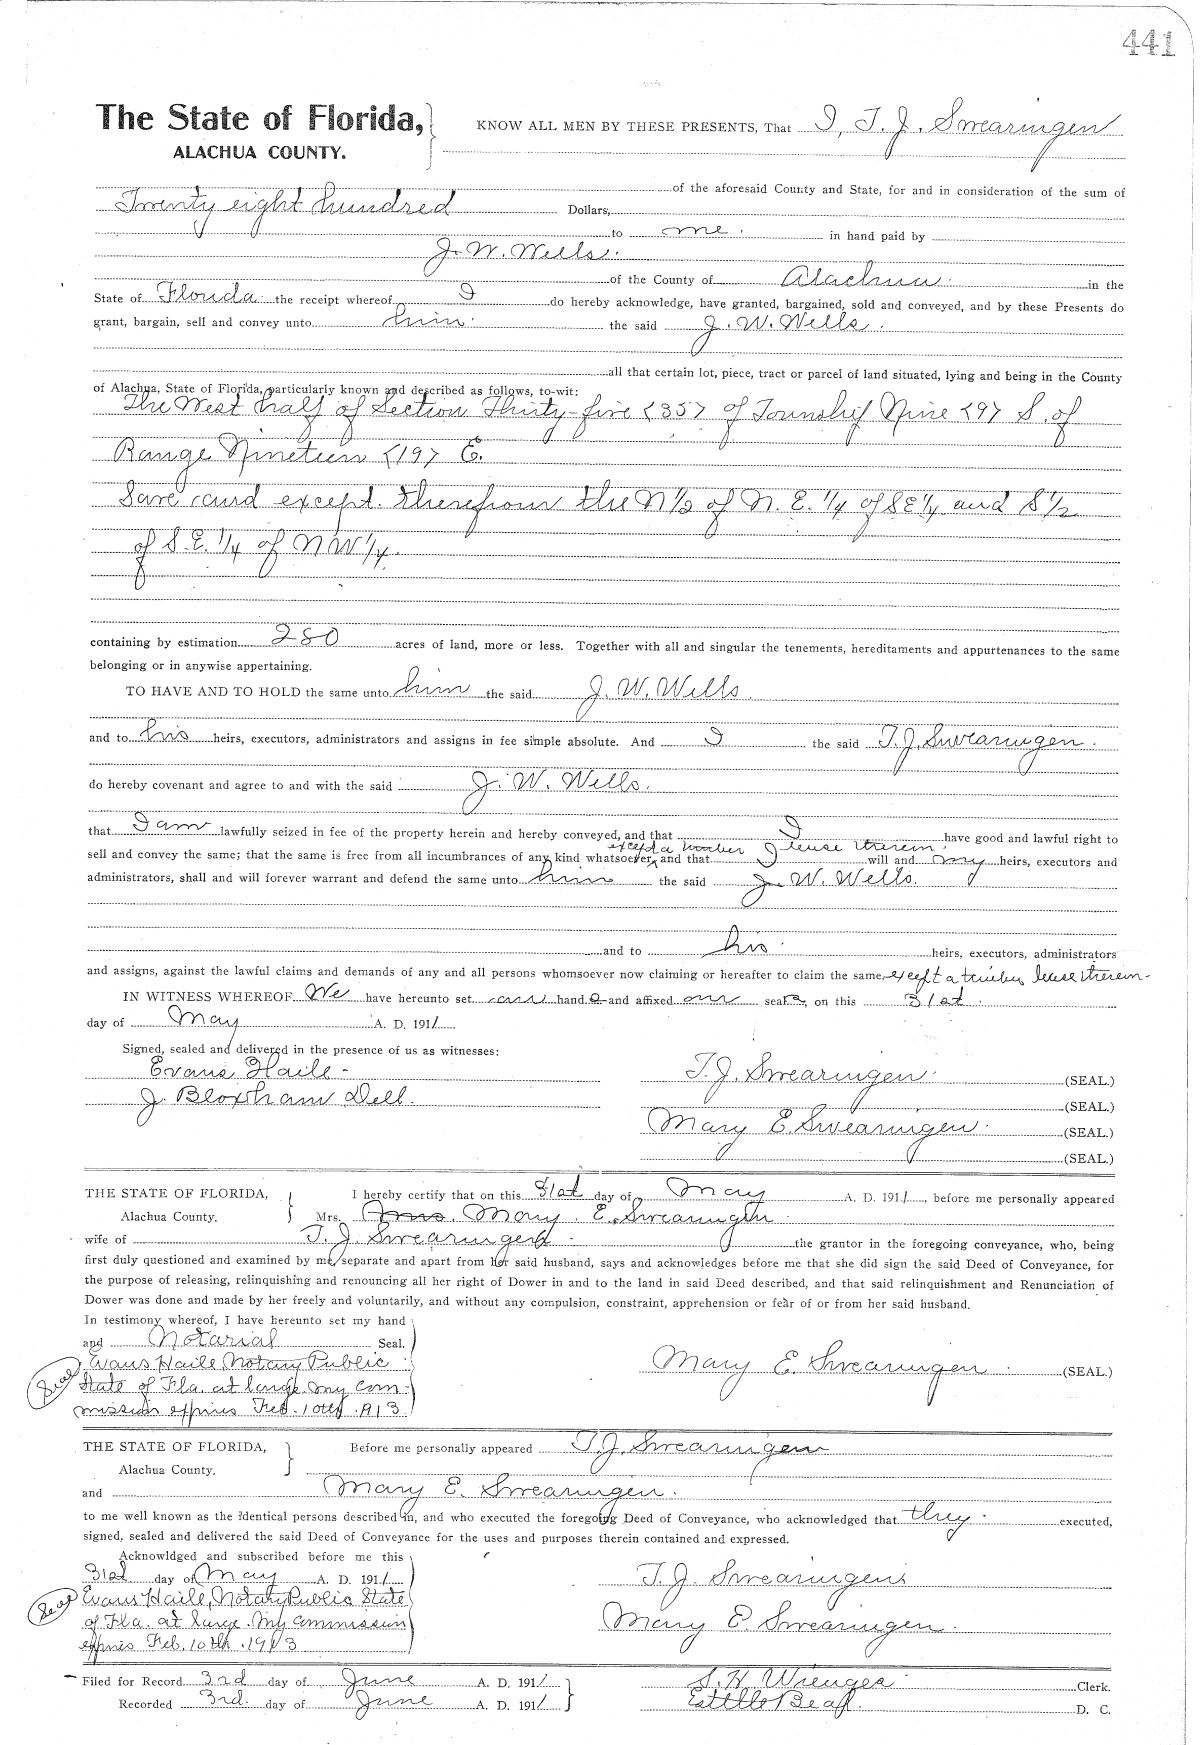 441
The State of Florida,
ALACHUA COUNTY.
KNOW ALL MEN BY THESE PRESENTS, That I, T. J. Swearingen
of the aforesaid County and State, for and in consideration of the sum of
Twenty eight hundred Dollars,
to me in hand paid by
J. W. Wells.
of the County of Alachua in the
State of Florida the receipt whereof I do hereby acknowledge, have granted, bargained, sold and conveyed, and by these Presents do
grant, bargain, sell and convey unto him the said J. W. Wells.
all that certain lot, piece, tract or parcel of land situated, lying and being in the County
of Alachua, State of Florida, particularly known and described as follows, to-wit:
The West half of Section Thirty-five <35> of Township Nine <9> S. of
Range Nineteen <19> E.
Save and except therefrom the N 1/2 of N. E. 1/4 of SE 1/4 and S 1/2
of S. E. 1/4 of N W 1/4.
containing by estimation 280 acres of land, more or less. Together with all and singular the tenements, hereditaments and appurtenances to the same
belonging or in anywise appertaining.
TO HAVE AND TO HOLD the same unto him the said J. W. Wells.
and to his heirs, executors, administrators and assigns in fee simple absolute. And I the said T. J. Swearingen.
do hereby covenant and agree to and with the said J. W. Wells.
that I am lawfully seized in fee of the property herein and hereby conveyed, and that I have good and lawful right to
except a lease therein.
sell and convey the same; that the same is free from all incumbrances of any kind whatsoever, and that I will and my heirs, executors and
administrators, shall and will forever warrant and defend the same unto him the said J. W. Wells.
and to his heirs, executors, administrators
and assigns, against the lawful claims and demands of any and all persons whomsoever now claiming or hereafter to claim the same, except a timber lease therein-
IN WITNESS WHEREOF We have hereunto set our hands and affixed our seals, on this 31st
day of May A. D. 1911
Signed, sealed and delivered in the presence of us as witnesses:
Evans Haile -
J. Bloxham Dell.
T. J. Swearingen. (SEAL.)
(SEAL.)
Mary E. Swearingen. (SEAL.)
(SEAL.)
THE STATE OF FLORIDA,
Alachua County.
I hereby certify that on this 31st day of May A. D. 1911, before me personally appeared
Mrs. Mary E. Swearingen
wife of T. J. Swearingen the grantor in the foregoing conveyance, who, being
first duly questioned and examined by me, separate and apart from her said husband, says and acknowledges before me that she did sign the said Deed of Conveyance, for
the purpose of releasing, relinquishing and renouncing all her right of Dower in and to the land in said Deed described, and that said relinquishment and Renunciation of
Dower was done and made by her freely and voluntarily, and without any compulsion, constraint, apprehension or fear of or from her said husband.
In testimony whereof, I have hereunto set my hand
and Notarial Seal.
Seal
Evans Haile Notary Public
State of Fla. at large. My com-
mission expires Feb. 10th. 1913.
Mary E. Swearingen (SEAL)
THE STATE OF FLORIDA,
Alachua County.
Before me personally appeared T. J. Swearingen
and Mary E. Swearingen.
to me well known as the identical persons described in, and who executed the foregoing Deed of Conveyance, who acknowledged that they executed,
signed, sealed and delivered the said Deed of Conveyance for the uses and purposes therein contained and expressed.
Acknowldged and subscribed before me this
31st day of May A. D. 1911
Seal
Evans Haile, Notary Public State
of Fla. at large. My commission
expires Feb. 10th. 1913
T. J. Swearingen
Mary E. Swearingen.
Filed for Record 3rd day of June A. D. 1911
Recorded 3rd. day of June A. D. 1911
S. H. Wienges Clerk.
D. C.